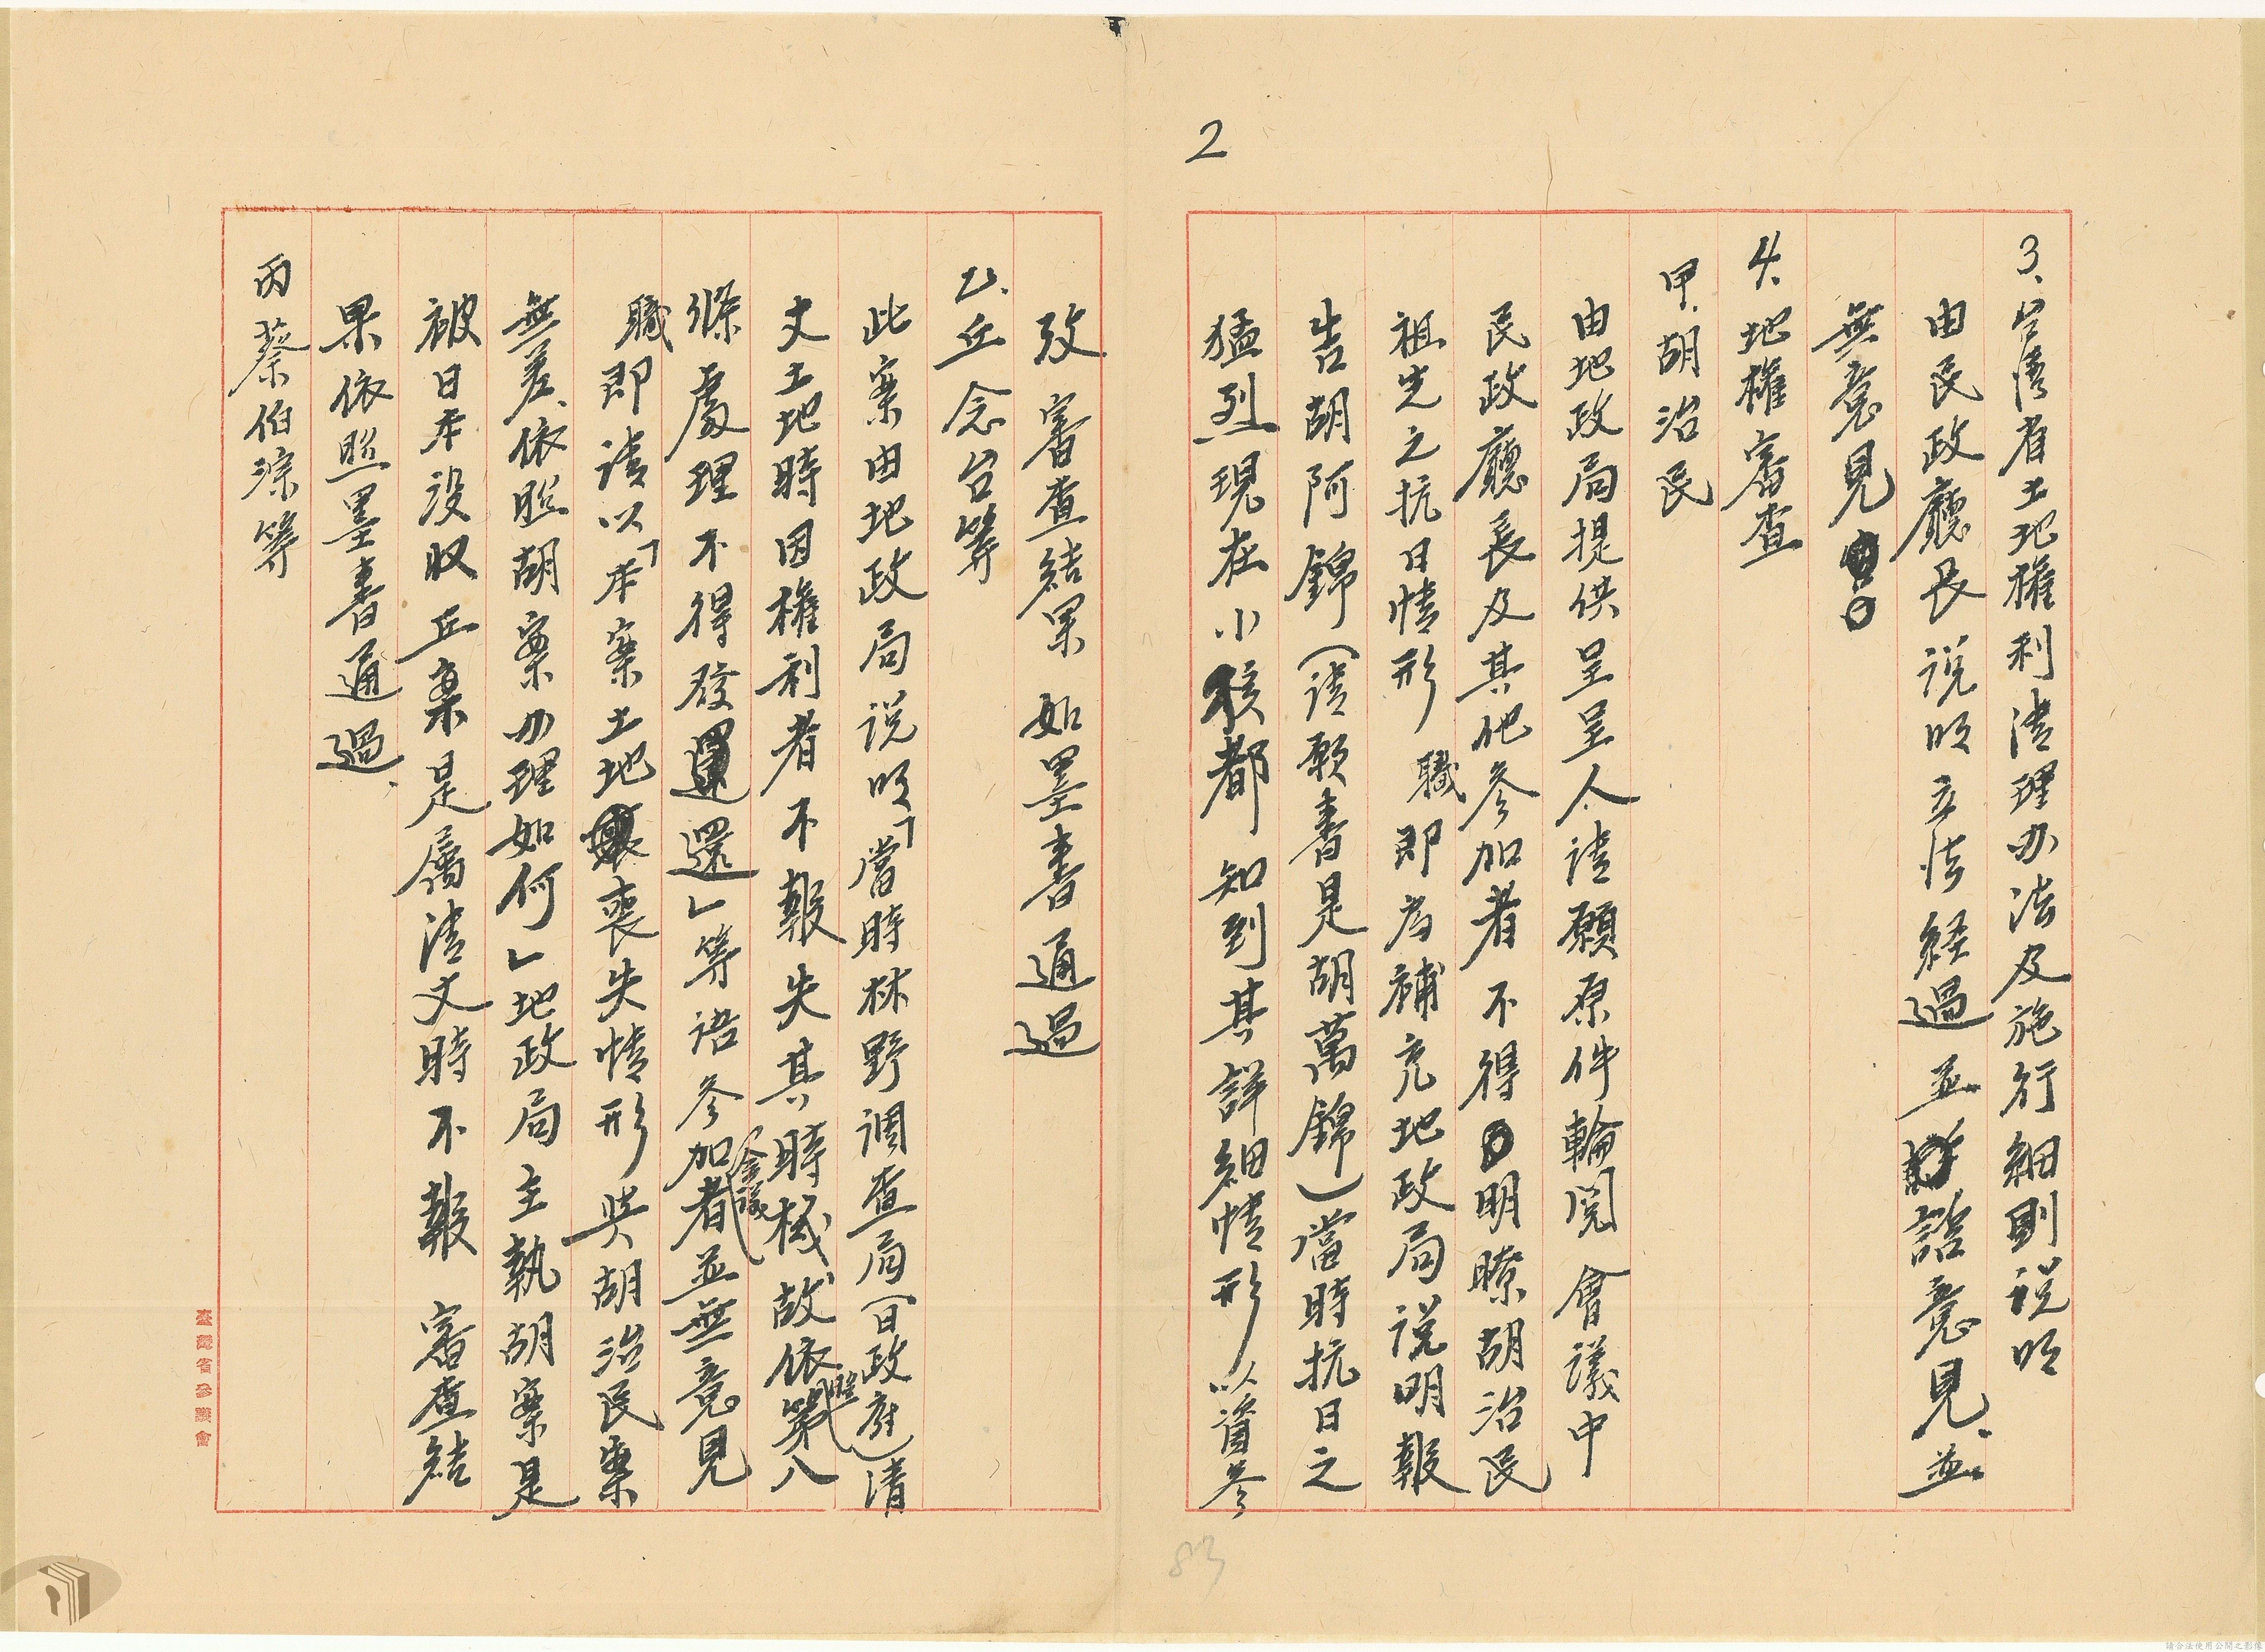 2
3、台湾省土地權利清理办法及施行細則说明
由民政廳長说明立法経過並諮意見、並
無意見
4、地權審查
甲、胡治民
由地政局提供呈呈人請願原件輪閱會議中
民政廳長及其他参加者不得明瞭胡治民
祖先之抗日情形職即為補充地政局说明報
告胡阿錦（请願書是胡萬錦）當時抗日之
猛烈現在小孩都知到其詳細情形以資参
攷審查結果如墨書通過
乙、丘念台等
此案由地政局说明「當時林野调查局（日政府）清
丈土地時因權利者不報失其時机故依照第八
條處理不得發還」等语参加会議者並無意見
職即請以「本案土地喪失情形與胡治民案
無差、依照胡案办理如何」地政局主執胡案是
被日本没收丘案是屬清丈時不報審查結
果依照墨書通過、
丙蔡伯淙等
臺灣省參議會
83
請合法使用公開之影像